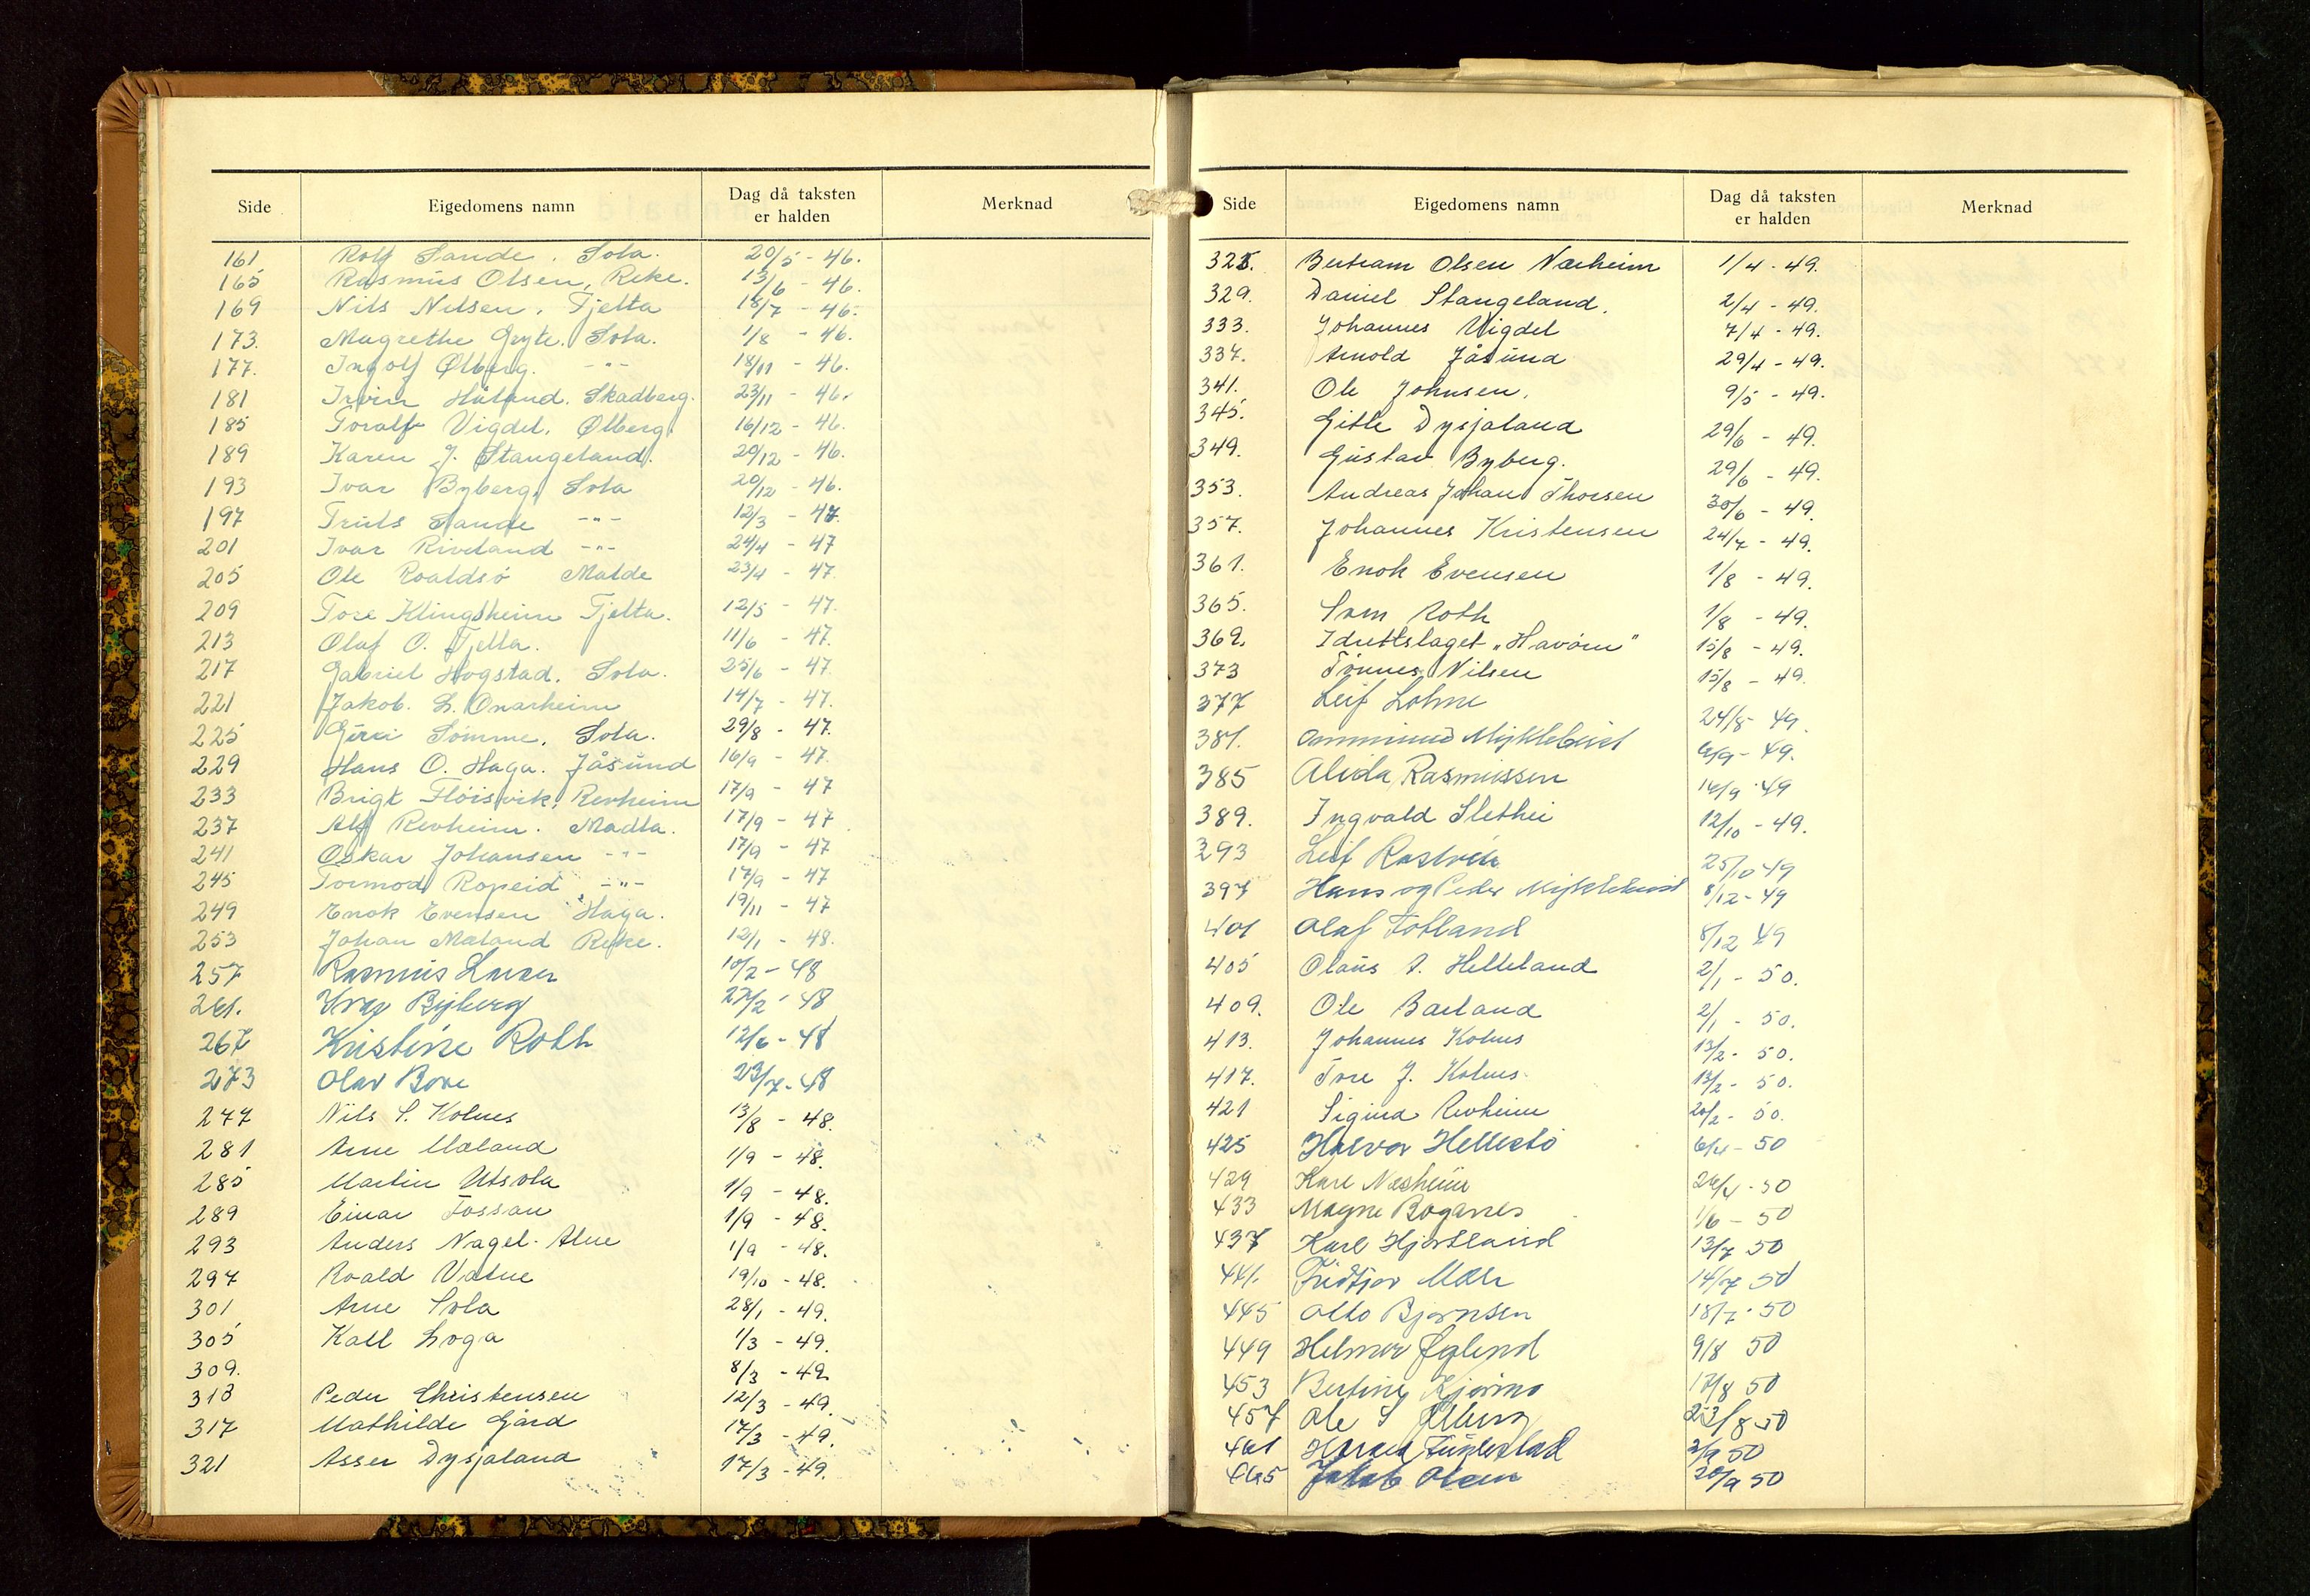 Side Eigedomens namn Dag då taksten er halden Merknad
161 Rolf Sande. Sola. 20/5 - 46.
165 Rasmus Olsen, Reke. 13/6 - 46.
169 Nils Nilsen. Tjelta 18/7 - 46.
173. Magrethe Gryte. Sola. 1/8 - 46.
177. Ingolf Ølberg. -"- 18/11 - 46.
181 Irvin Håland. Skadberg. 23/11 - 46.
185 Toralf Vigdel. Ølberg. 16/12 - 46.
189 Karen J. Stangeland. 20/12 - 46.
193 Ivar Byberg, Sola 20/12 - 46.
197 Truls Sande -"- 12/3 - 47.
201 Ivar Riveland -"- 24/4 - 47
205 Ole Roaldsö Malde 23/4 - 47.
209 Tore Klingsheim Tjelta. 12/5 - 47.
213 Olaf O. Tjelta. 11/6 - 47.
217 Gabriel Hogstad. Sola. 25/6 - 47.
221 Jakob. L. Onarheim 14/7 - 47.
225 Sömme. Sola. 29/8 - 47.
229 Hans O. Haga. Jåsund 16/9 - 47.
233 Brigt Flöisvik, Revheim 17/9 - 47
237 Alf Revheim. Madla. 17/9 - 47
241 Oskar Johansen -"- 17/9 - 47
245 Tormod Ropeid -"- 17/9 - 47
249 Enok Evensen Haga. 19/11 - 47
253 Johan Mæland Reke. 12/1 - 48.
257 Rasmus 10/2 - 48
261. Ivar Byberg 27/2 - 48
267 Kristine Roth 12/6 - 48
273 Olav Bore 23/7 - 48
277 Nils S. Kolnes 13/8 - 48.
281 Arne Mæland 1/9 - 48.
285 Martin Utsola 1/9 - 48.
289 Einar Fossan 1/9 - 48.
293 Anders Nagel-Alne 1/9 - 48.
297 Roald Vatne 19/10 - 48.
301 Arne Sola 28/1 - 49.
305 Kall Loga 1/3 - 49.
309. 8/3 - 49.
313 Peder Christensen 12/3 - 49.
317 Mathilde Gård 17/3 - 49.
321 Asser Dysjaland 17/3 - 49.
Side Eigedomens namn Dag då taksten er halden Merknad
325. Bertram Olsen Nærheim 1/4 - 49.
329. Daniel Stangeland. 2/4 - 49.
333. Johannes Vigdel 7/4 - 49.
337. Arnold Jåsund 29/4 - 49.
341. Ole Johnsen. 9/5 - 49.
345. Gitle Dysjaland 29/6 - 49.
349. Gustav Byberg. 29/6 - 49.
353. Andreas Johan Thorsen 30/6 - 49.
357. Johannes Kristensen 24/7 - 49.
361. Enok Evensen 1/8 - 49.
365. Sven Roth 1/8 - 49.
369. Idrettslaget "Havörn" 15/8 - 49.
373 Tönnes Nilsen 15/8 - 49.
377 Leif Lohne 24/8 49.
381. Ommund Myklebust 6/9 - 49.
385 Alida Rasmussen 14/9 - 49
389. Ingvald Slethei 12/10 - 49.
393 Leif 25/10 49
397 Hans og Peder Myklebust 8/12 - 49
401 Olaf Fotland 8/12 49
405 Olaus A. Helleland 2/1 - 50.
409. Ole Barland 2/1 - 50.
413. Johannes Kolnes 13/2 - 50.
417. Tore J. Kolnes. 13/2 - 50.
421 Sigurd Revheim 20/2 - 50.
425 Halvor Hellestö 6/4 - 50
429 Karl Næsheim 26/4 - 50
433 Magne Boganes 1/6 - 50
437 Karl Hjortland 13/7 50
441. Fridtjov Mæle 14/7 50
445 Otto Bjørnsen 18/7 - 50
449 Helmer Øglend 9/8 50
453 Bertine Kjørmo 17/8 50
457 Ole S Ølberg 23/8 50
461 Harald 2/9 50
465 Jakob Olsen 20/9 50